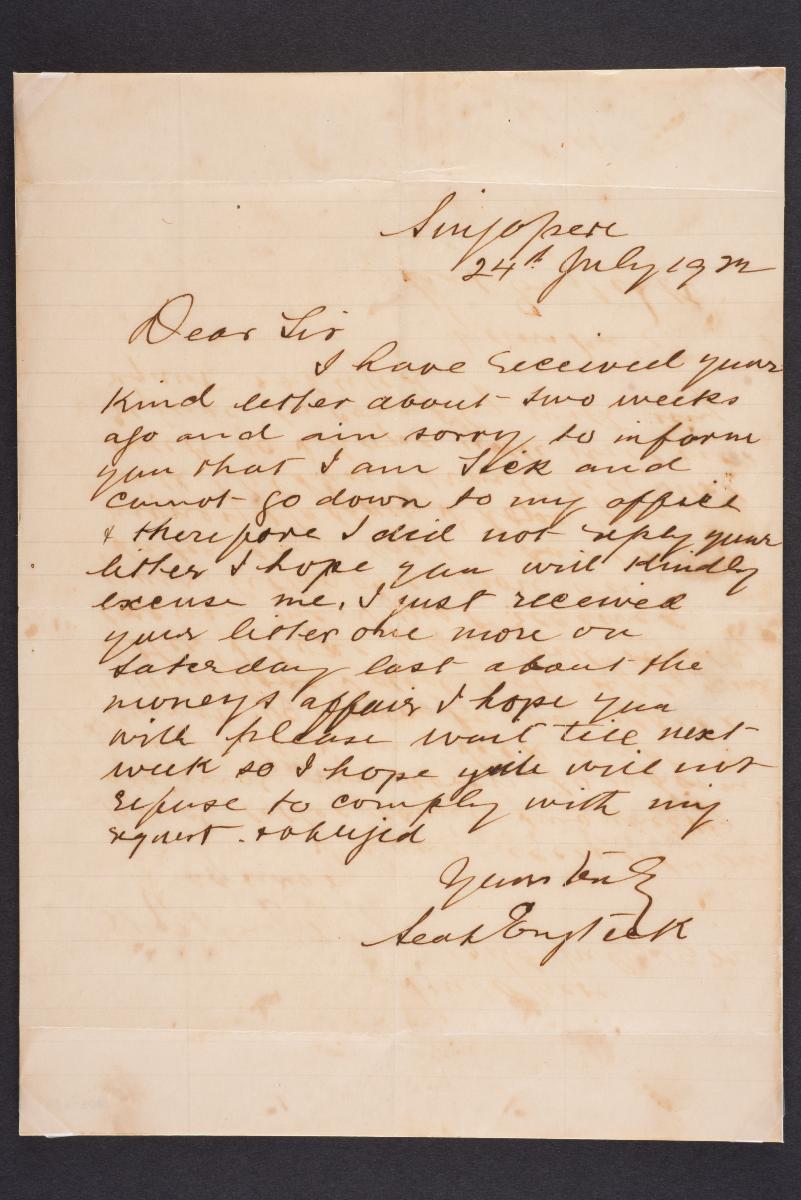 Singapore
24th July 19
Dear Sir
I have received your
Kind letter about two weeks
ago and am sorry to inform
you that I am Sick and
cannot go down to my office
& therefore I did not reply your
litter I hope you will Kindly
excuse me. I just received
your litter one more on
Saterday last about the
moneys affair I hope you
will please wait till next
week so I hope will not
refuse to comply with my
request. & obliged
Yours truly
Seah Eng Keck